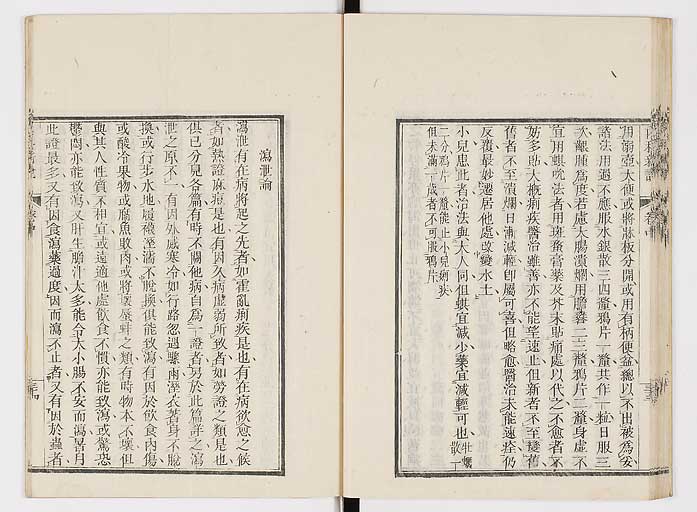 用溺壺大便或將牀板分開或用有柄便盆總以不出被爲妥
諸法用過不應服水銀散三四釐鴉片一釐共作一粒日服三
次齦腫爲度若慮大腸潰爛用膽礬二三釐鴉片二釐身虛不
宜用蜞吮法者用斑蝥膏藥及芥末貼痛處以代之不愈者不
妨多貼大概痢疾醫治雖善亦不能望速止但新者不至變舊
舊者不至潰爛日漸減輕卽屬可喜但略愈醫治未能速痊仍
反覆最妙遷居他處改變水土
小兒患此者治法與大人同但蜞宜減少藥宜減輕可也 牡蠣散一
二分鴉片一釐能止小兒痢疾
但未滿一歲者不可服鴉片
瀉泄論
瀉泄有在病將起之先者如霍亂痢疾是也有在病欲愈之候
者如熱證麻痘是也有因久病虛弱所致者如勞證之類是也
俱已分見各篇有時不關他病自爲一證者另於此篇詳之瀉
泄之原不一有因外感寒冷如行路忽遇驟雨溼衣著身不脫
換或行步水地履襪溼濡不脫換俱能致瀉有因於飲食內傷
或酸冷果物或腐魚敗肉或將壞蜃蚌之類有時物本不壞但
與其人性質不相宜或遠適他處飲食不慣亦能致瀉或驚恐
鬱悶亦能致瀉又肝生膽汁太多能令大小腸不安而瀉暑月
此證最多又有因食瀉藥過度因而瀉不止者又有因於蟲者